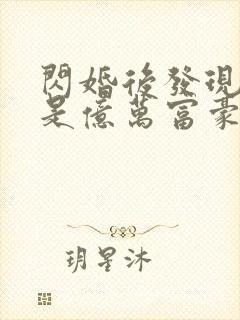 閃婚後發現
是億萬富豪
玥星沐